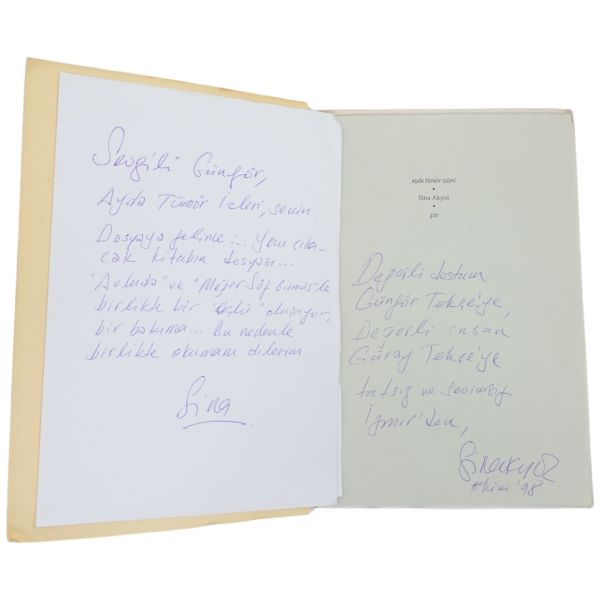 Sevgili Güngör,
Ayda Tümör İzleri, senin.
Dosyaya gelince... Yeni çıka-
cak kitabın dosyası...
"Avluda" ve "Meğer Söz Bitmiş"le
birlikte bir "üçlü" oluşuyor,
bir bakıma... Bu nedenle
birlikte okumanı dilerim.
Sina
ayda tümör izleri
•
Sina Akyol
•
şiir
Değerli dostum
Güngör Tekçe'ye,
Değerli insan
Güray Tekçe'ye
tatsız ve sevimsiz
İzmir'den,
Sina Akyol
Ekim '98